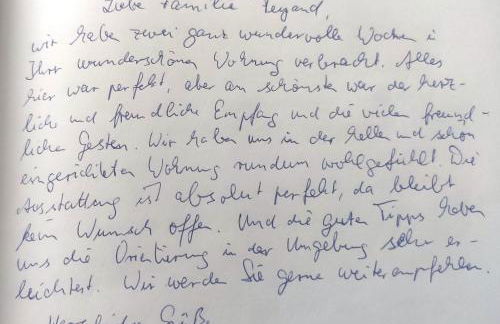 Liebe Familie
wir haben zwei ganz wundervolle Wochen i
Ihrer wunderschönen Wohnung verbracht. Alles
hier war perfekt, aber am schönsten war der herz-
liche und freundliche Empfang und die vielen freund-
lichen Gesten. Wir haben uns in der hellen und schön
eingerichteten Wohnung rundum wohlgefühlt. Die
Ausstattung ist absolut perfekt, da bleibt
kein Wunsch offen. Und die guten Tipps haben
uns die Orientierung in der Umgebung sehr er-
leichtert. Wir werden Sie gerne weiterempfehlen.
Herzliche Grüße